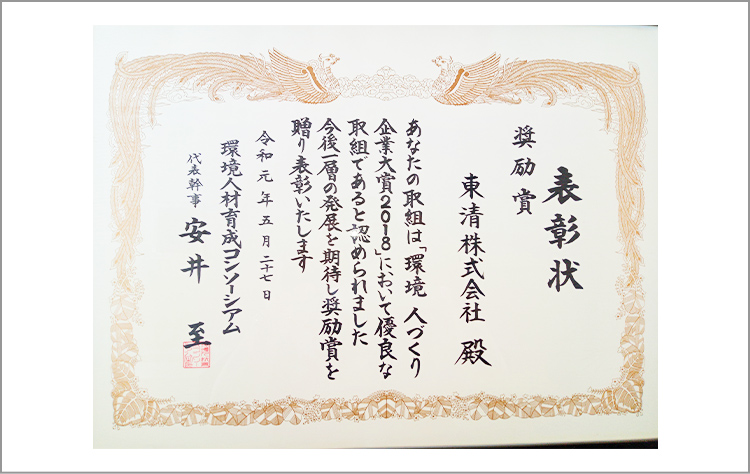 表彰状
奨励賞
東清株式会社 殿
あなたの取組は「環境 人づくり
企業大賞2018」において優良な
取組であると認められました
今後一層の発展を期待し奨励賞を
贈り表彰いたします
令和元年五月二十七日
環境人材育成コンソーシアム
代表幹事 安井 至